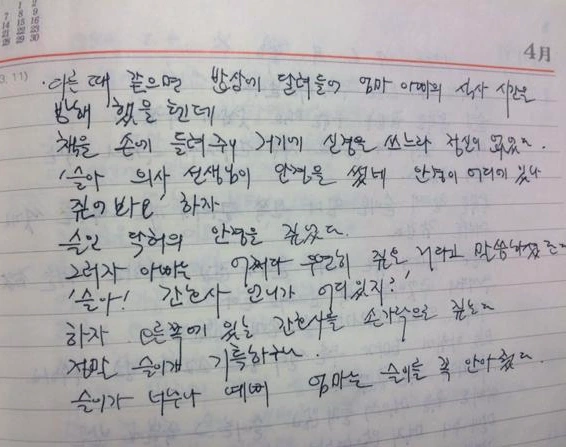 1 2
7 8 9
14 15 16
21 22 23
28 29 30
4月
3. 11)
· 다른 때 같으면 밥상에 달려들어 엄마 아빠의 식사 시간을
방해 했을 텐데
책을 손에 들려주니 거기에 신경을 쓰느라 정신이 없었다.
'슬아 의사 선생님이 안경을 썼네 안경이 어디에 있나
짚어 봐요' 하자
슬인 닥터의 안경을 짚었다.
그러자 아빠는 어쩌다 우연히 짚은 거라고 말씀하셨는데
'슬아! 간호사 언니가 어디있지?'
하자 오른쪽에 있는 간호사를 손가락으로 짚는다
정말 슬이가 기특하구나.
슬이가 너무나 예뻐 엄마는 슬이를 꼭 안아줬다.